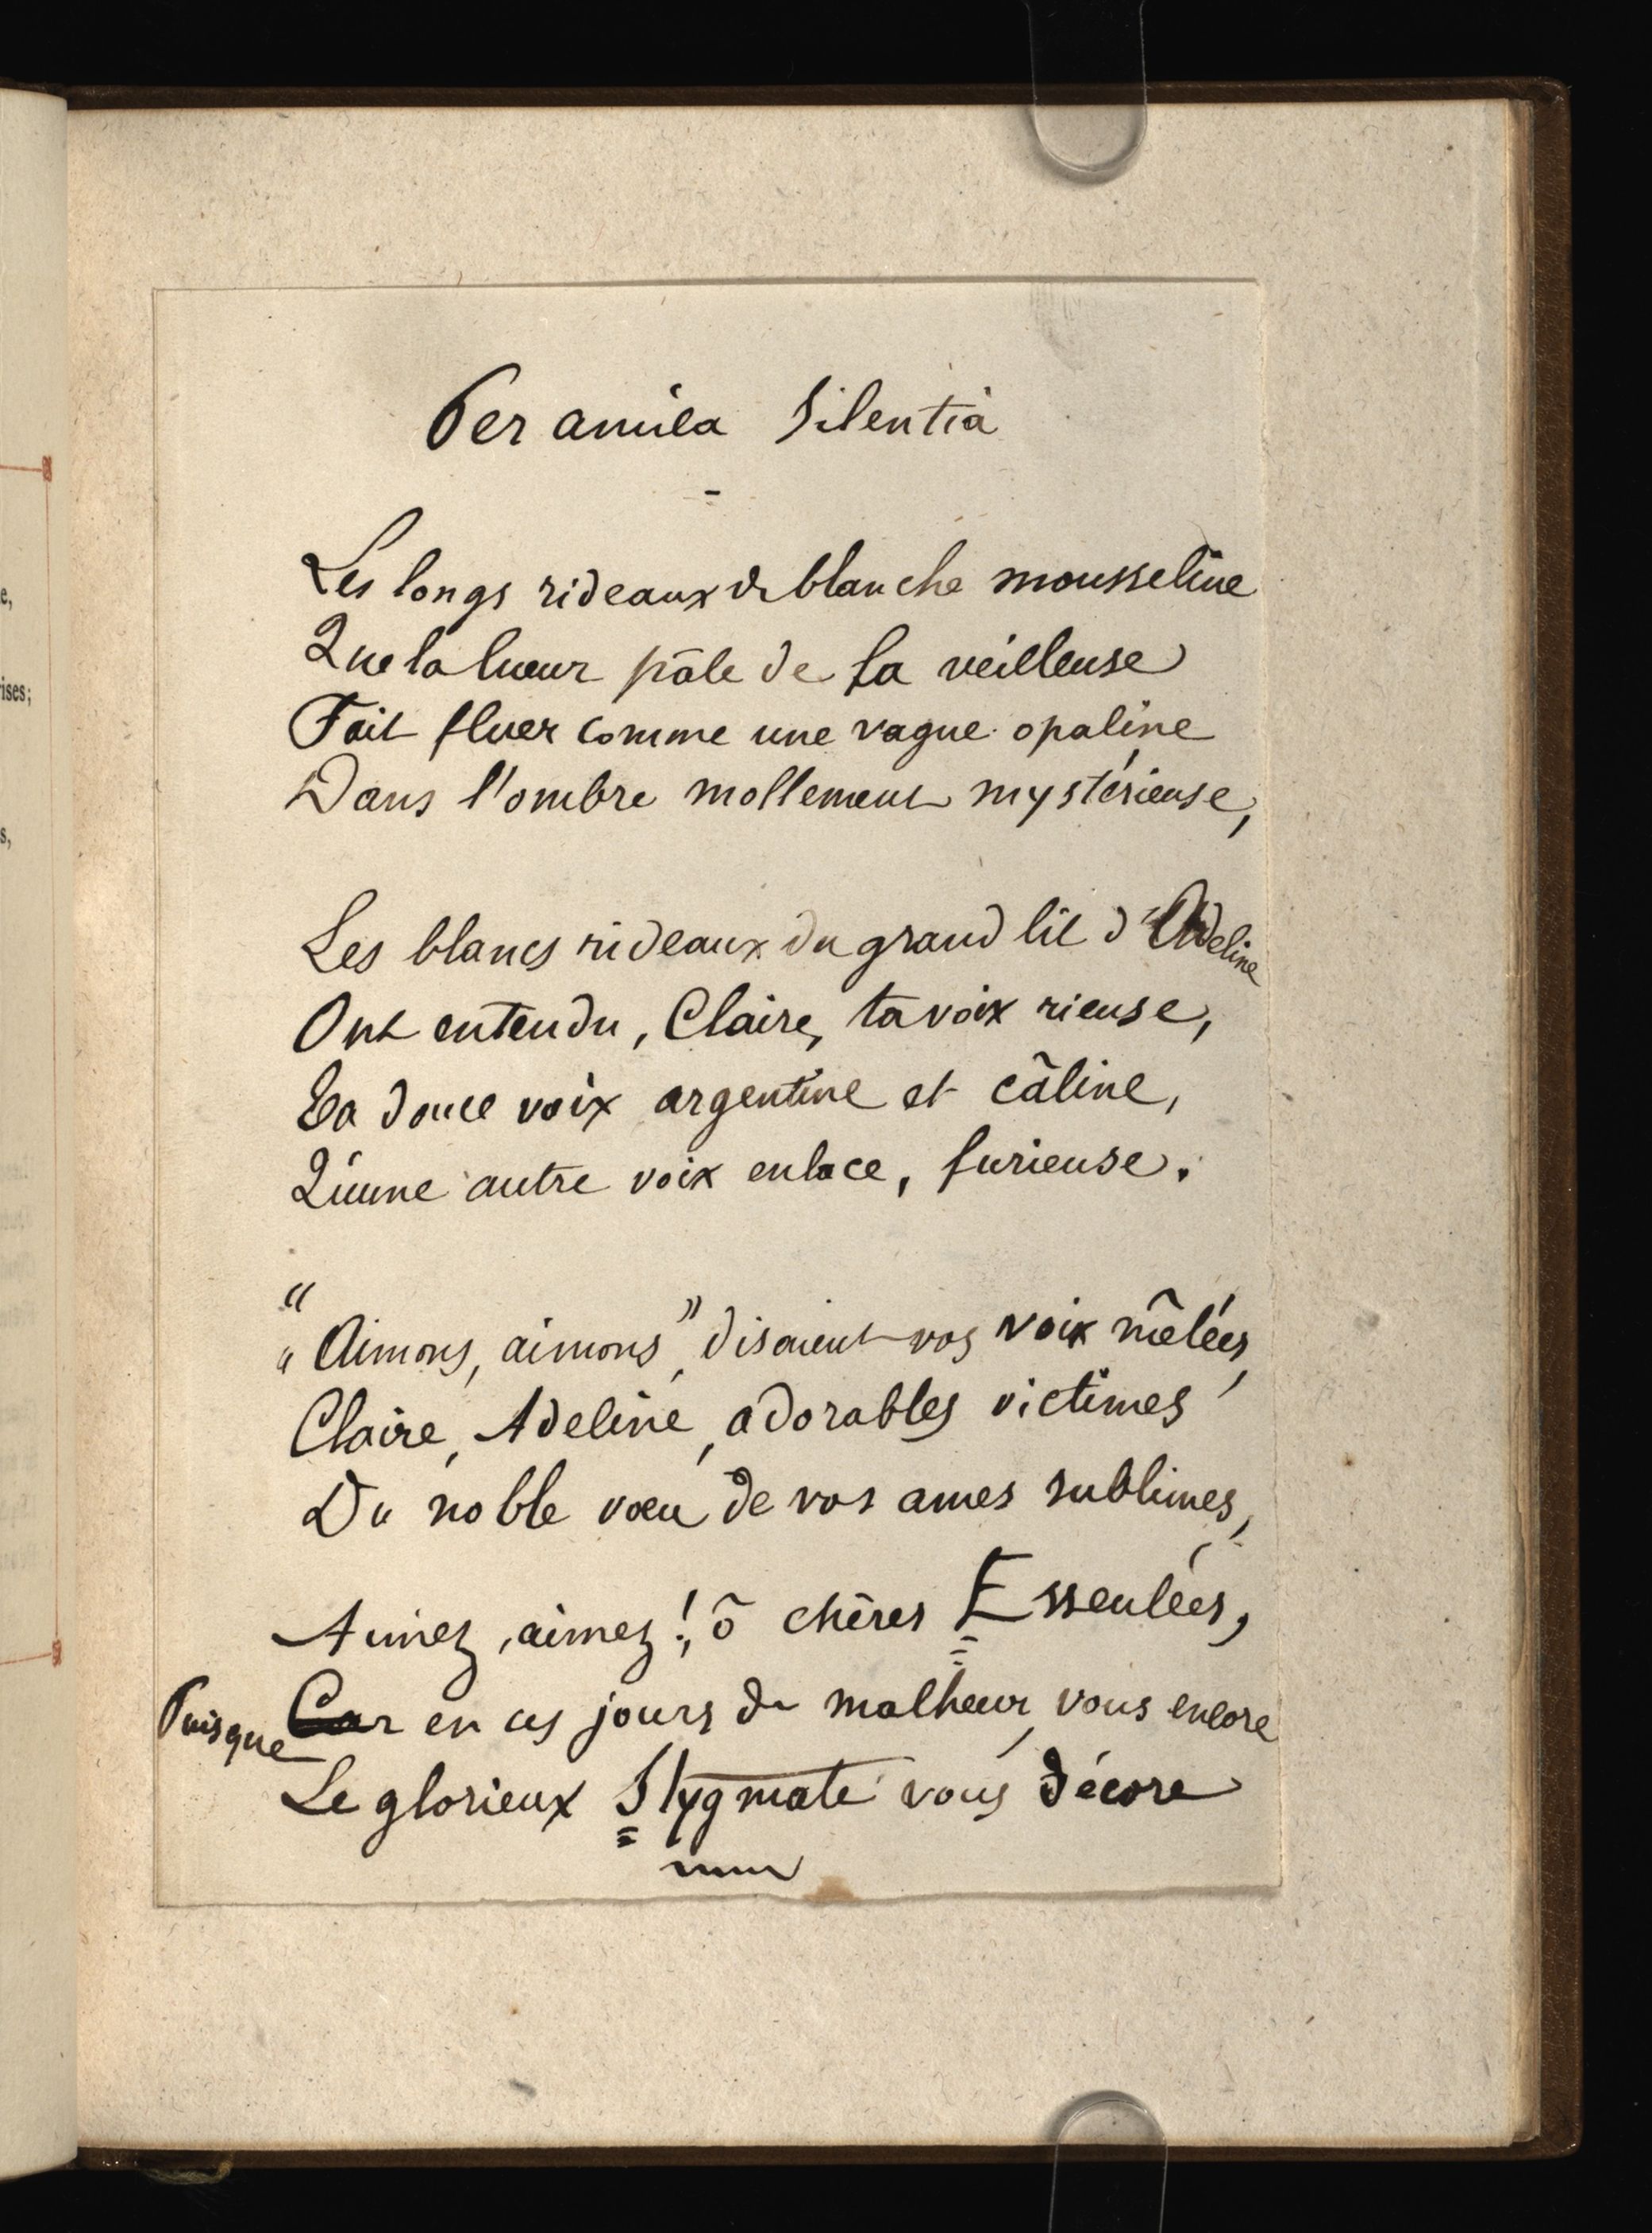 e,
ises;
s,
Per amica Silentia
-
Les longs rideaux de blanche mousseline
Que la lueur pâle de la veilleuse
Fait fluer comme une vague opaline
Dans l'ombre mollement mystérieuse,
Les blancs rideaux du grand lit d'Adeline
Ont entendu, Claire, ta voix rieuse,
Ta douce voix argentine et câline,
Qu'une autre voix enlace, furieuse.
"
"Aimons, aimons", disaient vos voix mêlées,
Claire, Adeline, adorables victimes
Du noble vœu de vos ames sublimes,
Aimez, aimez!, ô chères Esseulées,
Puisque Car en ces jours de malheur, vous encore
Le glorieux Stygmate vous décore